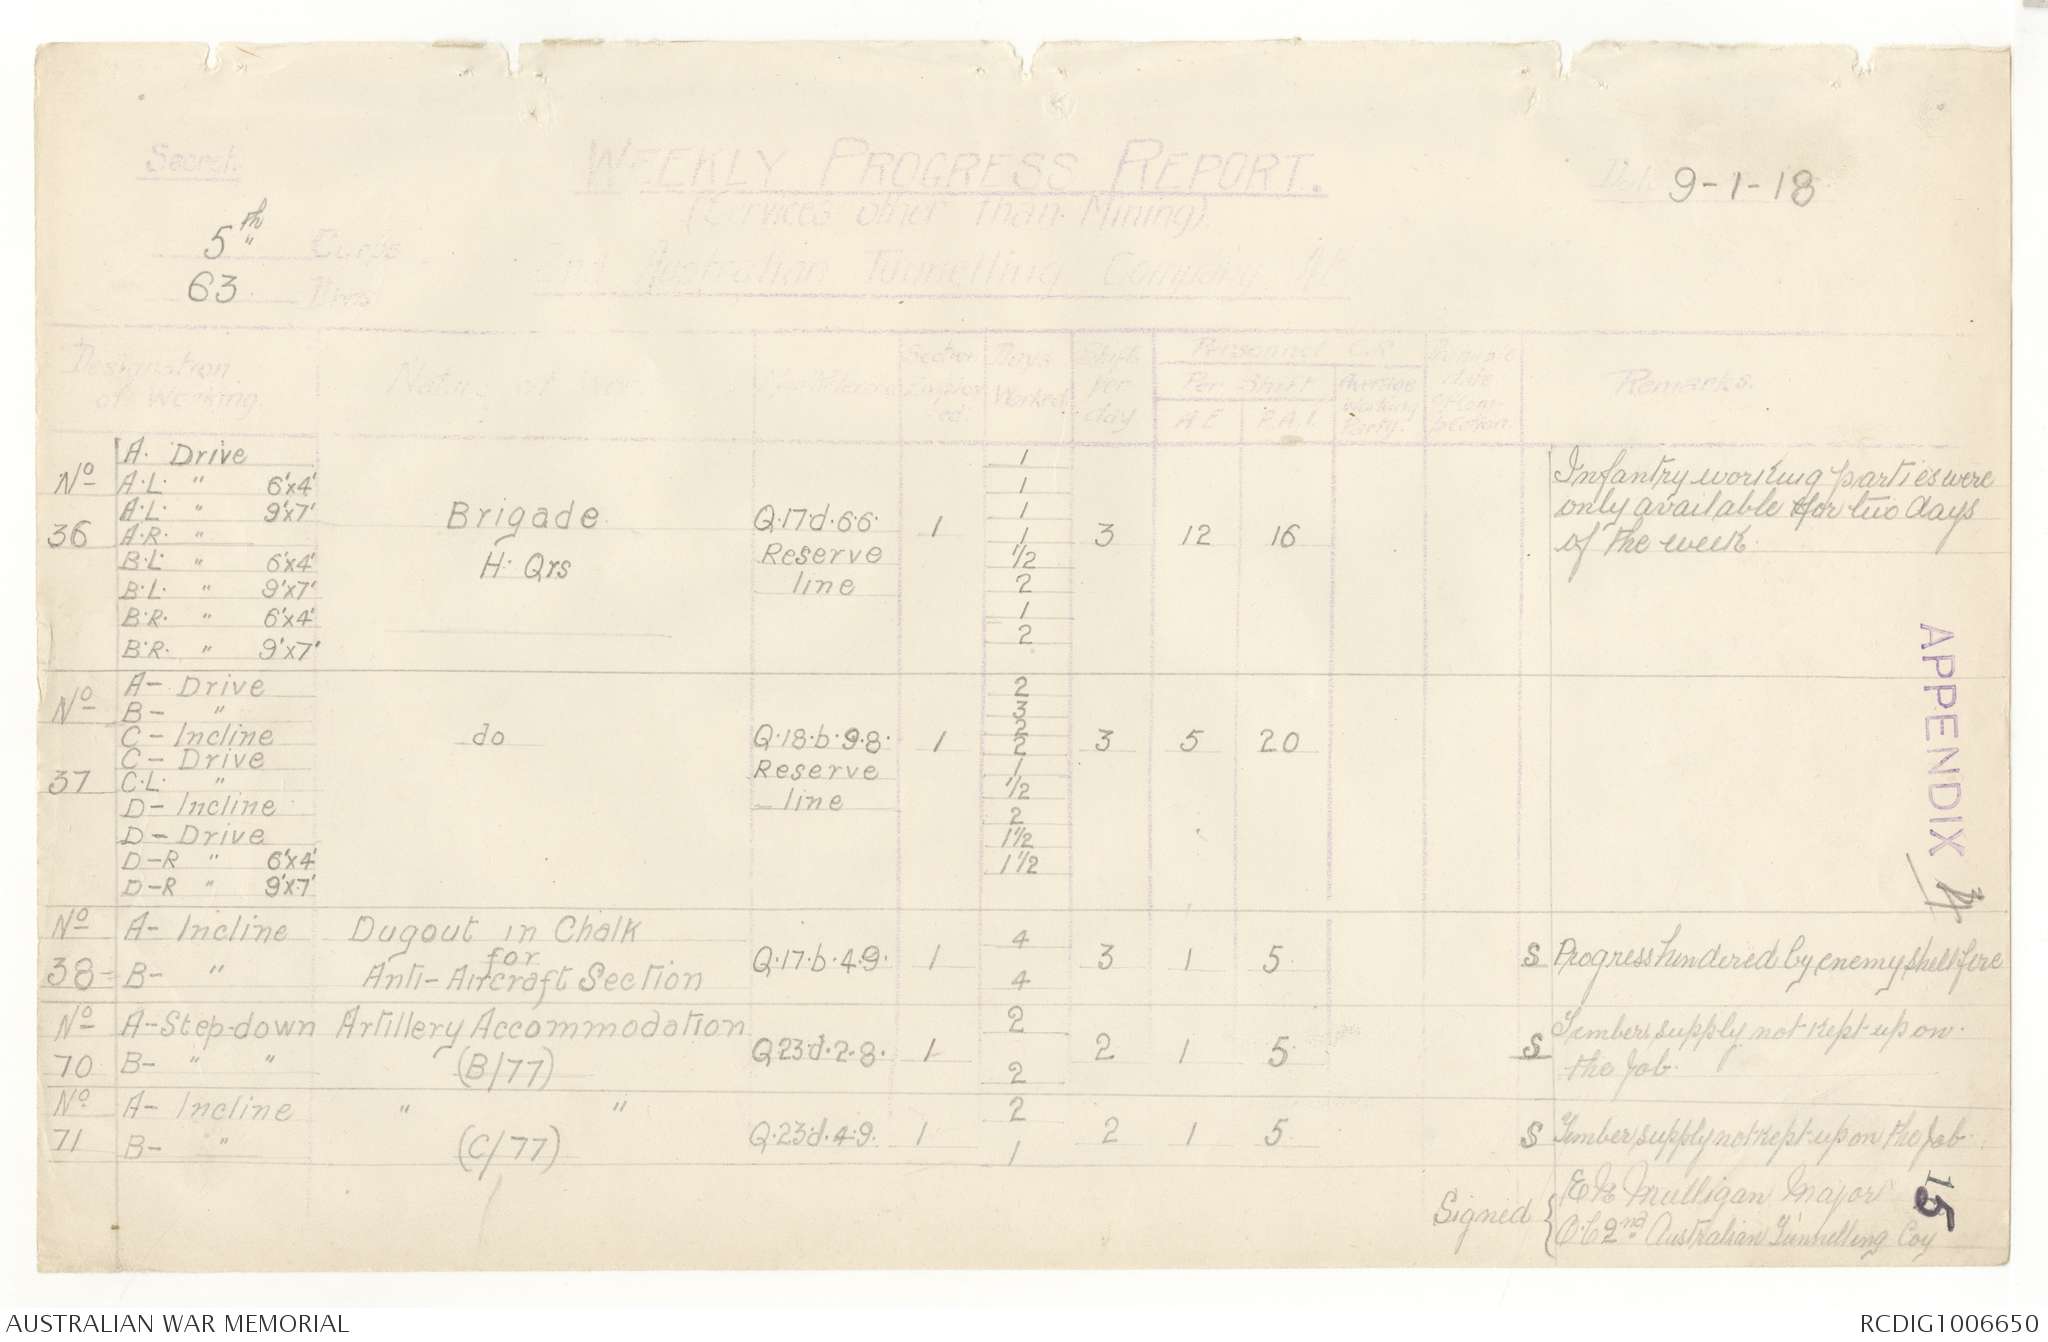 Secret.
WEEKLY PROGRESS REPORT.
Date 9-1-18
(Services other than Mining).
5th Corps
2nd Australian Tunnelling Company
63 Divn
Designation of Working.
Nature of Work
Map Reference
Section Employed
Days Worked
Shifts per day.
Personnel O.R.
Per Shift
A.E
P.A.I.
Average Working Party.
Date Completion
Remarks.
No 36
A. Drive 1
A.L. " 6'x4' 1
A.L. " 9'x7' 1
A.R. " 1
B.L. " 6'x4' 1/2
B.L. " 9'x7' 2
B.R. " 6'x4' 1
B.R. " 9'x7' 2
Brigade
H. Qrs
Q.17.d.6.6.
Reserve
line
1 3 12 16
Infantry working parties were
only available for two days
of the week.
No 37
A- Drive 2
B- " 3
C- Incline 2
C- Drive 2
C.L. " 1
D- Incline 1/2
D- Drive 2
D-R " 6'x4' 1 1/2
D-R " 9'x7' 1 1/2
do
Q.18.b.9.8.
Reserve
line
1 3 5 20
No 38
A- Incline 4
B- " 4
Dugout in Chalk
for
Anti-Aircraft Section
Q.17.b.4.9. 1 3 1 5
S Progress hindered by enemy shell fire
No 70
A-Step-down 2
B- " " 2
Artillery Accommodation
(B/77)
Q.23.d.2.8. 1 2 1 5
S Timber supply not kept up on
the Job.
No 71
A- Incline 2
B- " 1
" "
(C/77)
Q.23.d.4.9. 1 2 1 5
S Timber supply not kept up on the Job.
Signed { Mulligan Major
O.C 2nd Australian Tunnelling Coy
APPENDIX
15
AUSTRALIAN WAR MEMORIAL
RCDIG1006650